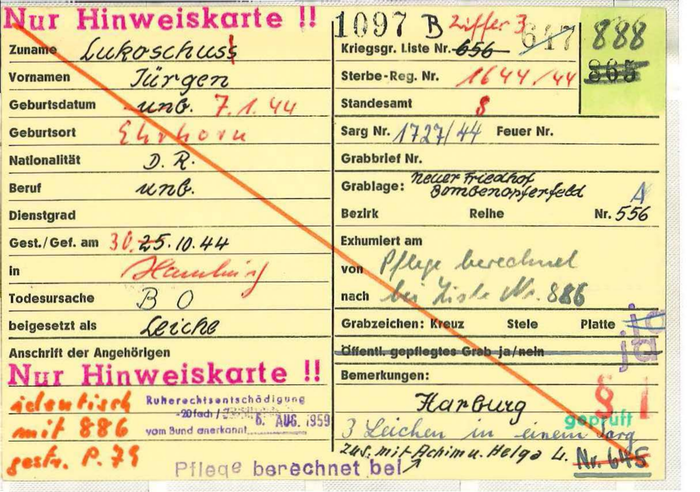 Nur Hinweiskarte !!
Zuname Lukoschuss
Vornamen Jürgen
Geburtsdatum unb. 7.1.44
Geburtsort Ehrhorn
Nationalität D.R.
Beruf unb.
Dienstgrad
Gest./Gef. am 30. 25.10.44
in Hamburg
Todesursache B O
beigesetzt als Leiche
Anschrift der Angehörigen
Nur Hinweiskarte !!
identisch
mit 886
gestr. P. 79
Ruherechtsentschädigung
-20fach /
vom Bund anerkannt 6. AUG. 1959
Pflege berechnet bei
1097 B Ziffer 3 647 888
Kriegsgr. Liste Nr. 656
865
Sterbe-Reg. Nr. 1644/44
Standesamt
Sarg Nr. 1727/44 Feuer Nr.
Grabbrief Nr.
Grablage: Neuer Friedhof
Bombenopferfeld A
Bezirk Reihe Nr. 556
Exhumiert am
von Pflege berechnet
nach bei Liste Nr. 886
Grabzeichen: Kreuz Stele Platte ja
Öffentl. gepflegtes Grab ja/nein ja
Bemerkungen:
Harburg § 1
geprüft
3 Leichen in einem Sarg
zus. mit Achim u. Helga L. Nr. 645